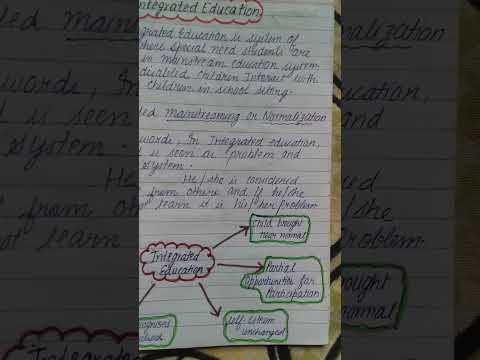 Integrated Education
grated Education is system of
where special need students are
in mainstream education system.
disabled children Interact with
children in school setting.
led mainstreaming or Normalization
words, In Integrated education,
d is seen as problem and
system.
He/she is considered
from others and if he/she
ot learn it is his/her problem.
Child bought
near normal
Integrated
Education
Partial
Opportunities for
Participation
Self-Esteem
unchanged